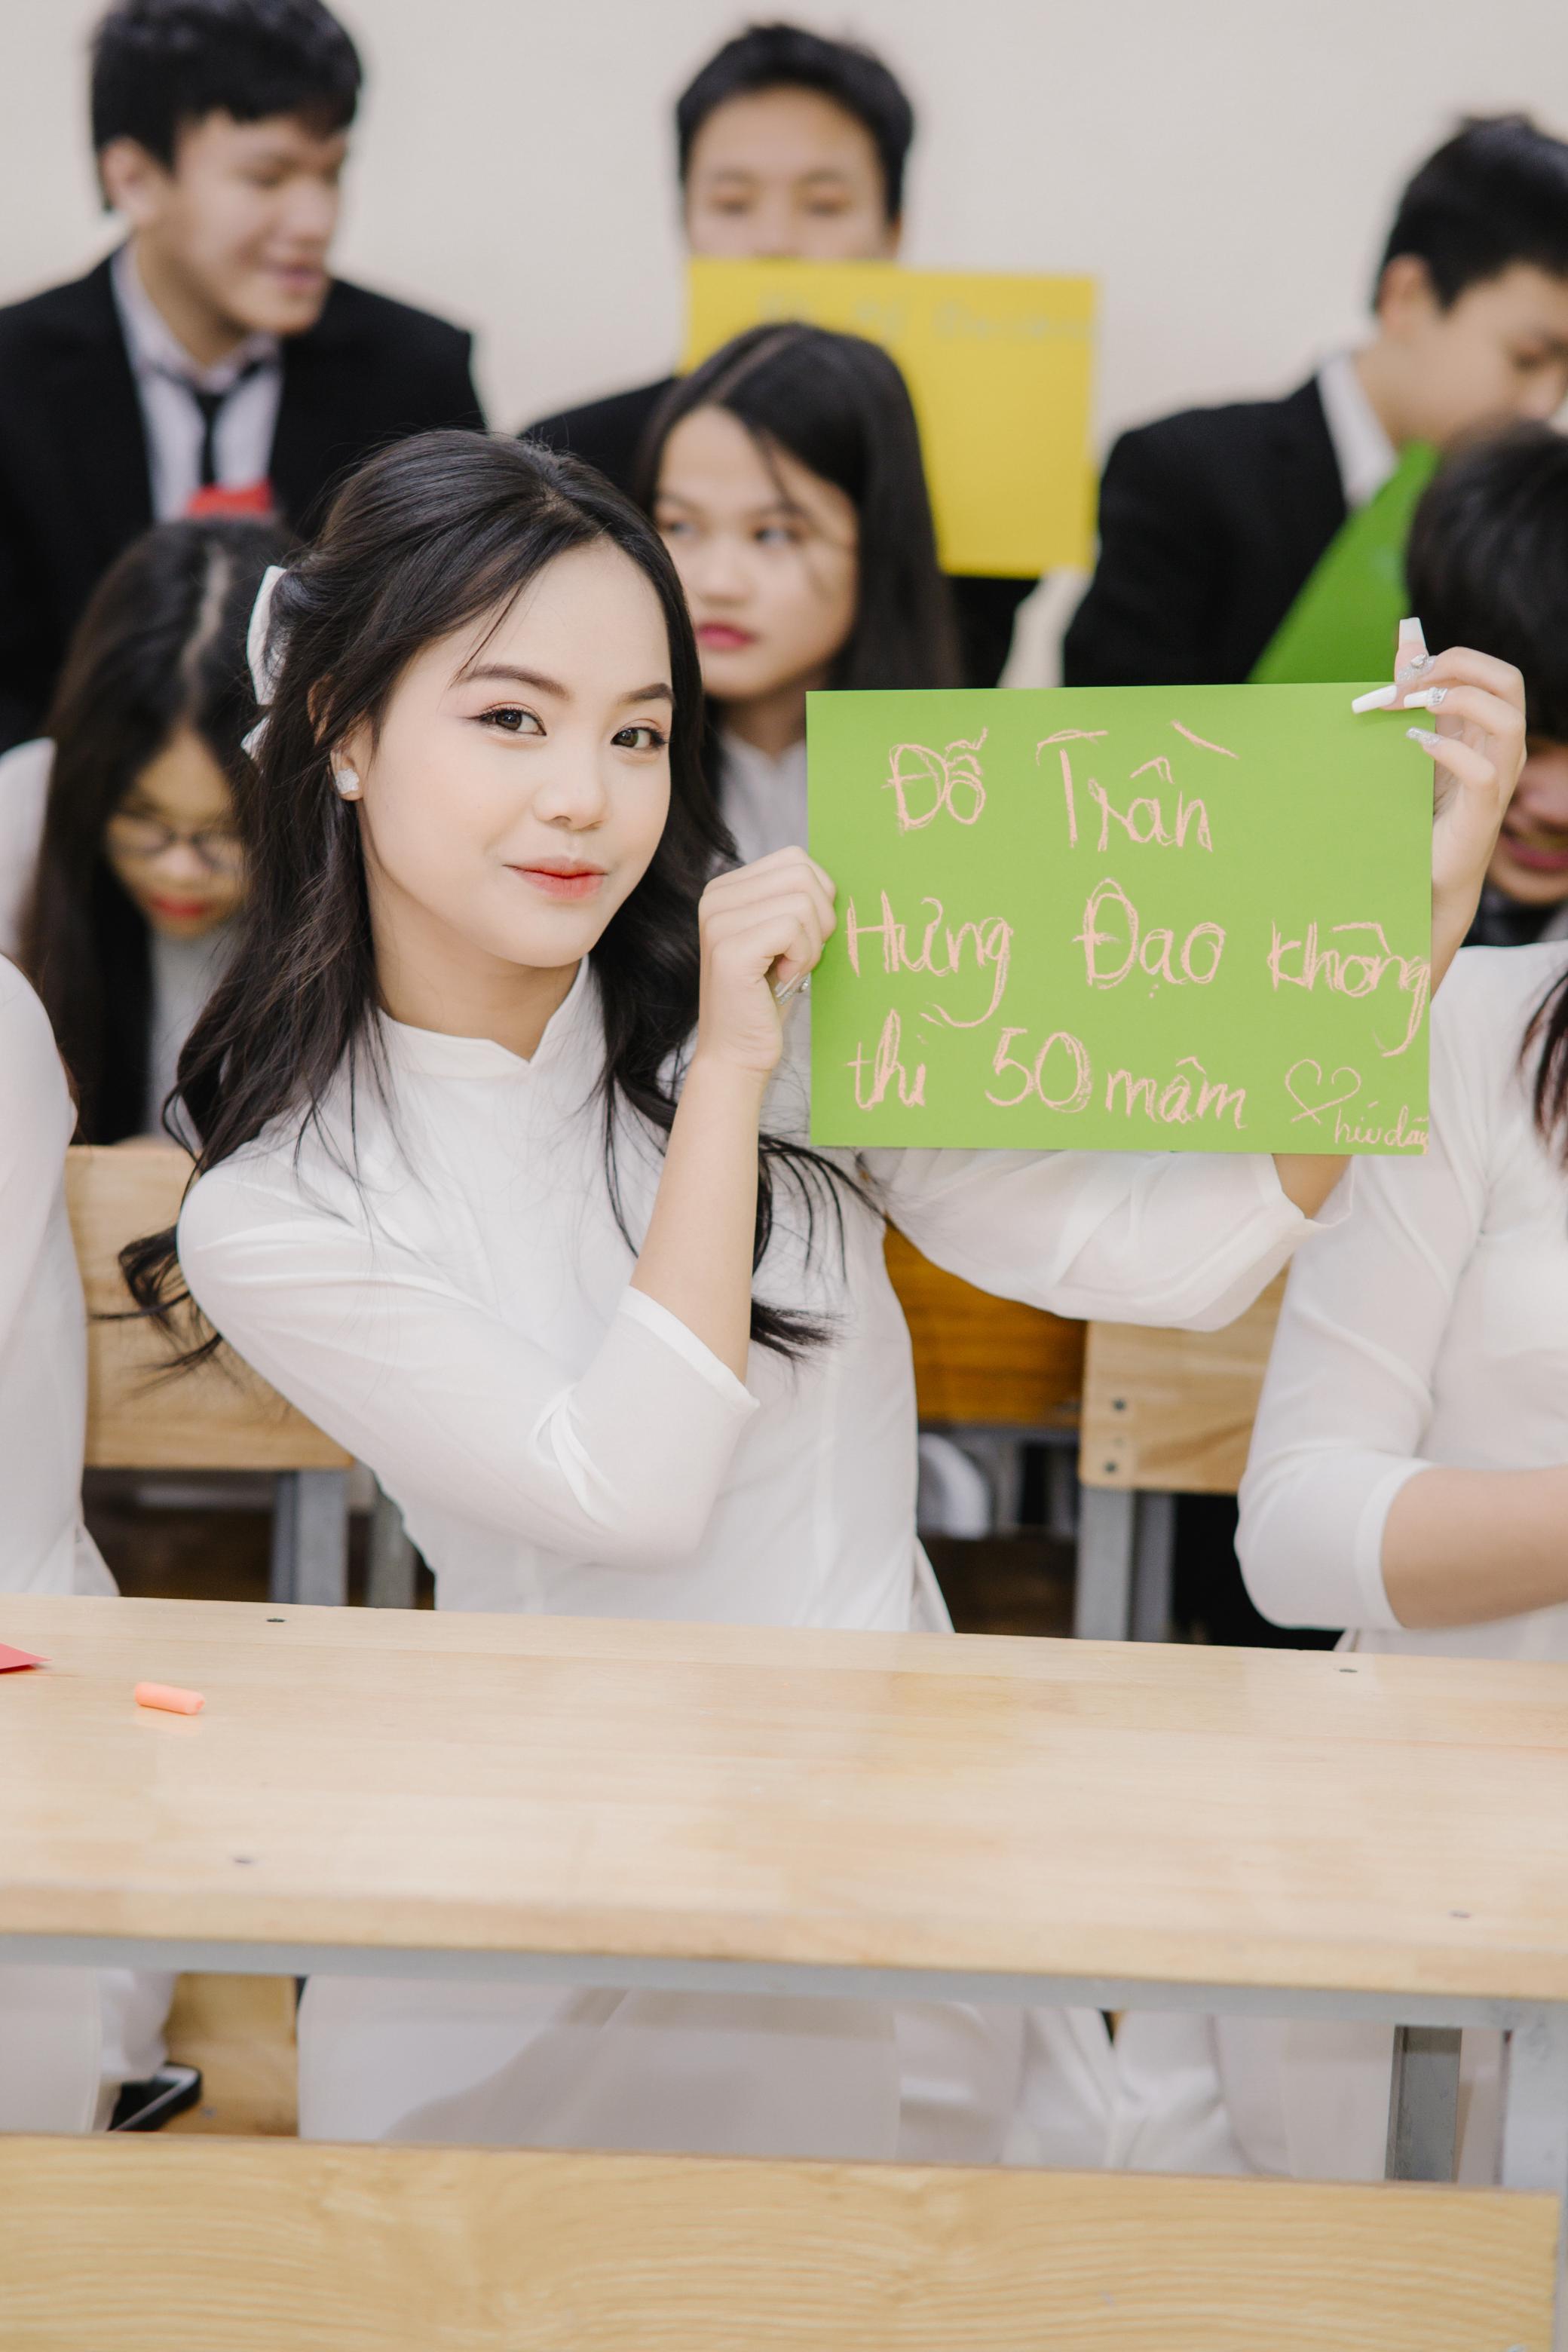 Đỗ Trần
Hưng Đạo không
thì 50 mâm